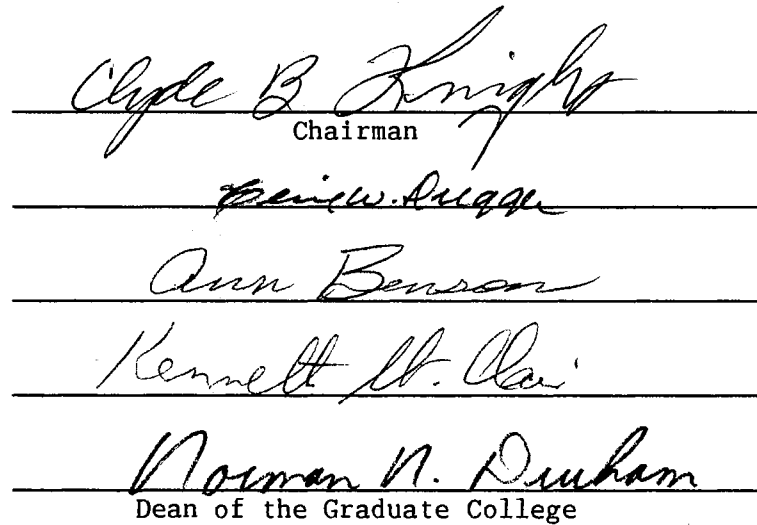 Clyde B Knight
Chairman
W. Dugger
Ann Benson
Kenneth St. Clair
Norman N. Durham
Dean of the Graduate College